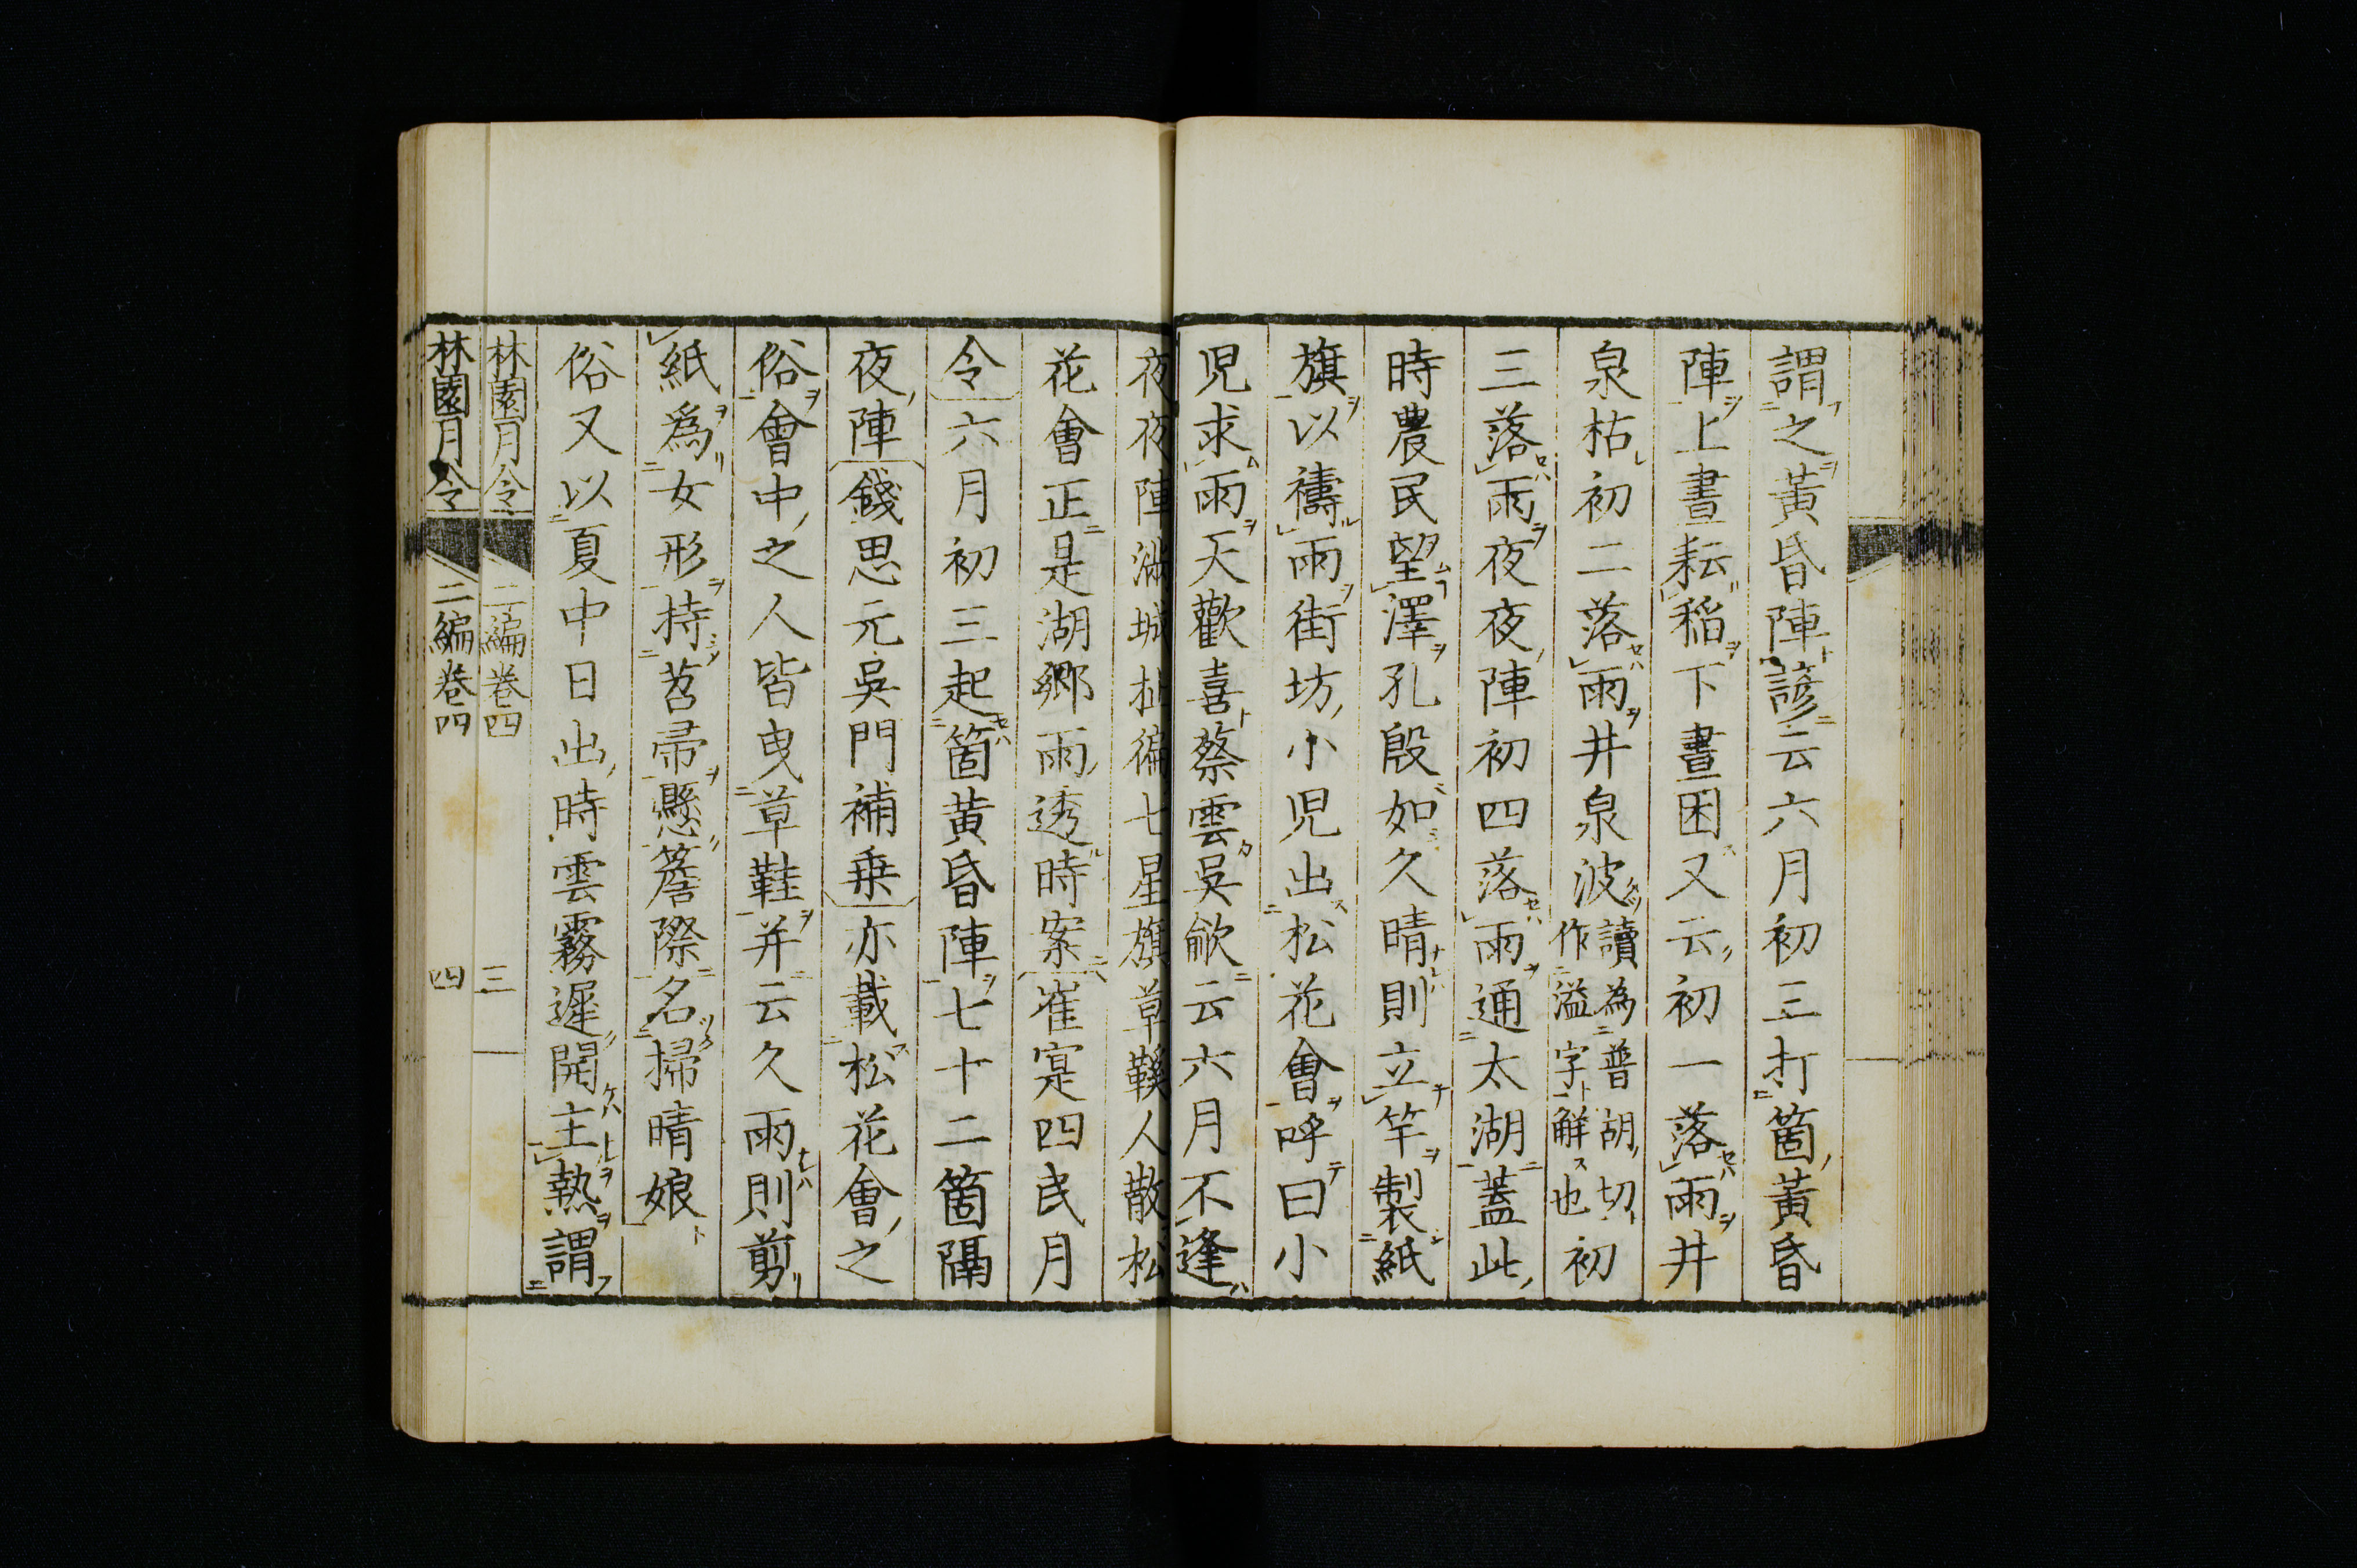 謂之黃昏陣諺云六月初三打箇黃昏
陣上晝耘稲下晝困又云初一落雨井
泉枯初二落雨井泉波讀為普胡切作溢字解也初
三落雨夜夜陣初四落雨通太湖蓋此
時農民望澤孔殷如久晴則立竿製紙
旗以禱雨街坊小児出松花會呼曰小
児求雨天歡喜蔡雲吳歈云六月不逢
夜夜陣滿城扯徧七星旗草鞵人散松
花會正是湖郷雨透時案崔寔四民月
令六月初三起箇黄昏陣七十二箇隔
夜陣錢思元吳門補乗亦載松花會之
俗會中之人皆曳草鞋并云久雨則剪
紙為女形持苕帚懸簷際名掃晴娘
俗又以夏中日出時雲霧遲開主熱謂
林園月令 二編卷四 三
林園月令 二編卷四 四